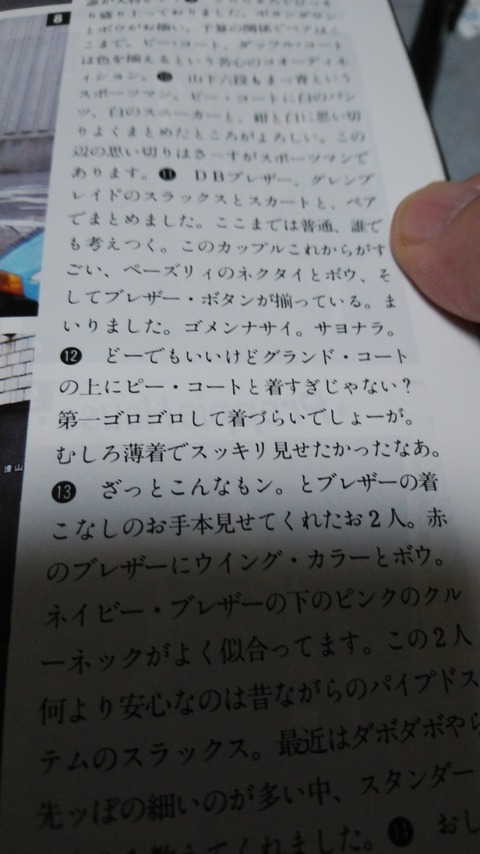 8
り盛り上っておりました。ボタンダウン
とボウがお揃い。予算の関係でペアはこ
こまで。ピー・コート、ダッフル・コート
は色を揃えるという苦心のコーディネイ
ィション。❿ 山下六段もまっ青という
スポーツマン。ピー・コートに白のパン
ツ、白のスニーカーと、紺と白に思い切
りよくまとめたところがよろしい。この
辺の思い切りはさ〜すがスポーツマンで
あります。⓫ DBブレザー、グレンプ
レイドのスラックスとスカートと、ペア
でまとめました。ここまでは普通、誰で
も考えつく。このカップルこれからがす
ごい、ペーズリィのネクタイとボウ、そ
してブレザー・ボタンが揃っている。ま
いりました。ゴメンナサイ。サヨナラ。
⓬ どーでもいいけどグランド・コート
の上にピー・コートと着すぎじゃない？
第一ゴロゴロして着づらいでしょーが。
むしろ薄着でスッキリ見せたかったなあ。
⓭ ざっとこんなもン。とブレザーの着
こなしのお手本見せてくれたお2人。赤
のブレザーにウイング・カラーとボウ。
ネイビー・ブレザーの下のピンクのクル
ーネックがよく似合ってます。この2人
何より安心なのは昔ながらのパイプドス
テムのスラックス。最近はダボダボやら
先ッぽの細いのが多い中、スタンダー
教えてくれました。⓮ おし